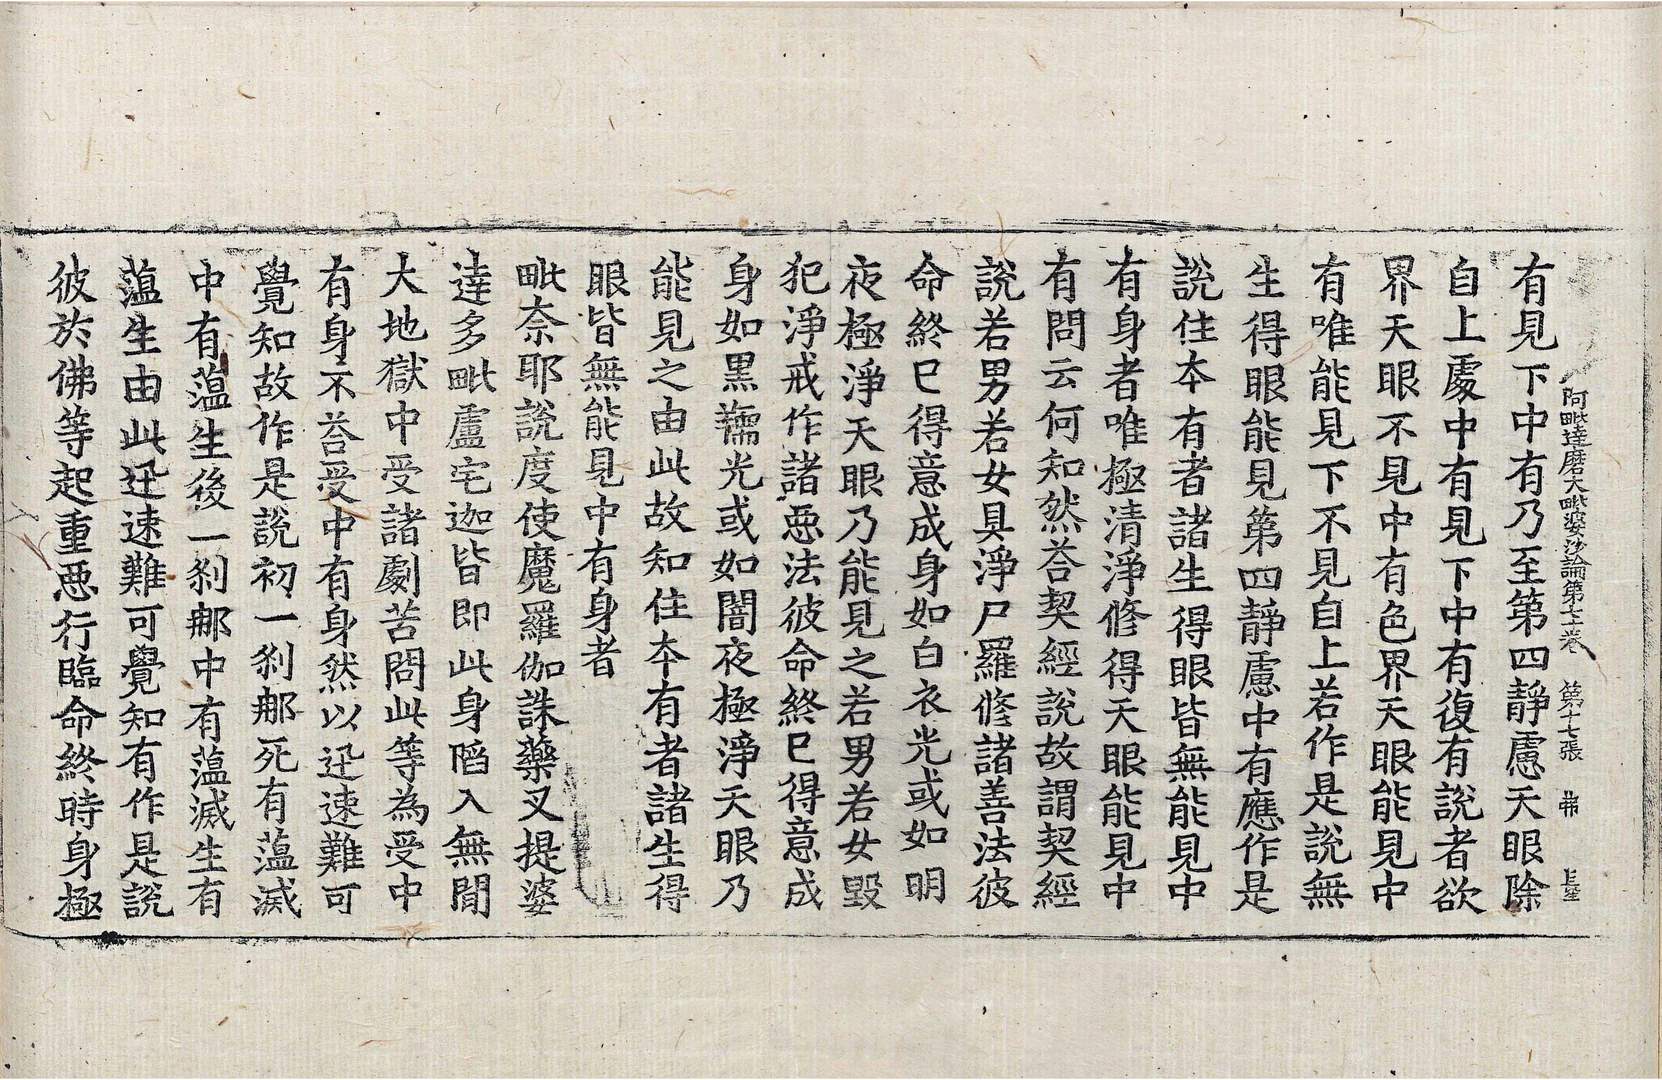 阿毗達磨大毗婆沙論第七十卷 第十七張 弗
有見下中有乃至第四靜慮天眼除
自上處中有見下中有復有說者欲
界天眼不見中有色界天眼能見中
有唯能見下不見自上若作是說無
生得眼能見第四靜慮中有應作是
說住本有者諸生得眼皆無能見中
有身者唯極清淨修得天眼能見中
有問云何知然荅契經說故謂契經
說若男若女具淨尸羅修諸善法彼
命終已得意成身如白衣光或如明
夜極淨天眼乃能見之若男若女毀
犯淨戒作諸惡法彼命終已得意成
身如黑羺光或如闇夜極淨天眼乃
能見之由此故知住本有者諸生得
眼皆無能見中有身者
毗奈耶說度使魔羅伽誅藥叉提婆
達多毗盧宅迦皆即此身陷入無間
大地獄中受諸劇苦問此等為受中
有身不荅受中有身然以迅速難可
覺知故作是說初一刹那死有蘊滅
中有蘊生後一刹那中有蘊滅生有
蘊生由此迅速難可覺知有作是說
彼於佛等起重惡行臨命終時身極